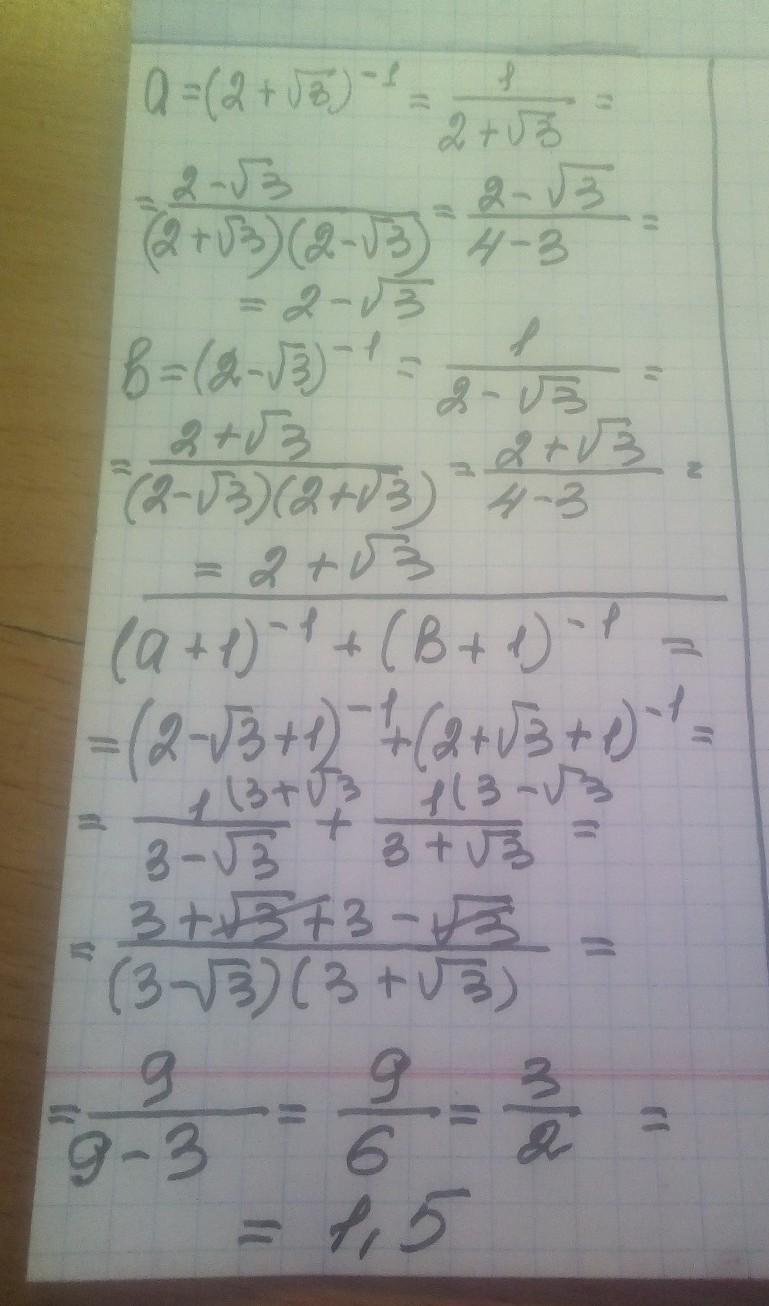 a = (2 + √3)⁻¹ = 1/(2 + √3) =
= (2 - √3)/((2 + √3)(2 - √3)) = (2 - √3)/(4 - 3) =
= 2 - √3
B = (2 - √3)⁻¹ = 1/(2 - √3) =
= (2 + √3)/((2 - √3)(2 + √3)) = (2 + √3)/(4 - 3) =
= 2 + √3
(a + 1)⁻¹ + (B + 1)⁻¹ =
= (2 - √3 + 1)⁻¹ + (2 + √3 + 1)⁻¹ =
= 1(3 + √3/(3 - √3) + 1(3 - √3/(3 + √3) =
= (3 + √3 + 3 - √3)/((3 - √3)(3 + √3)) =
= 9/(9 - 3) = 9/6 = 3/2 =
= 1,5